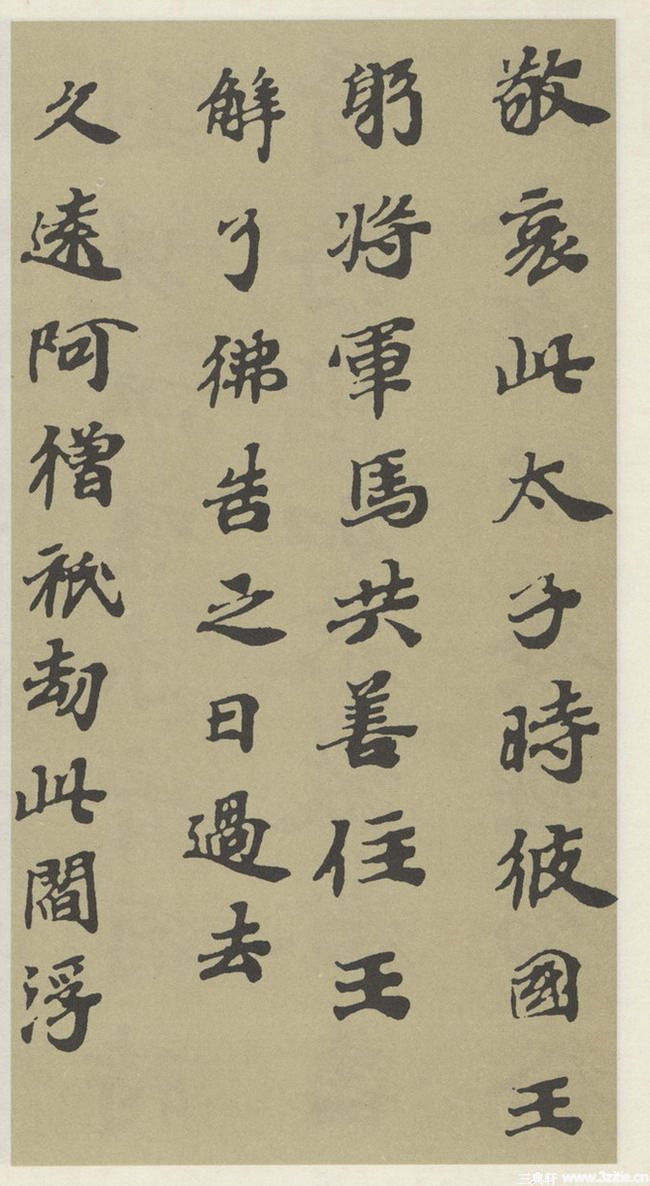 敬哀此太子時彼國王
躬將軍馬共善住王
解了佛告之曰過去
久遠阿僧祇劫此閻浮
三典轩 www.3zitie.cn